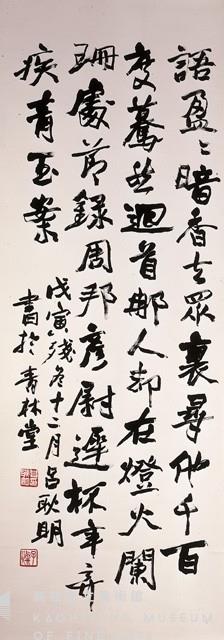 語盈〻暗香去眾裏尋他千百
度驀然迴首那人却在燈火闌
珊處節錄周邦彥尉遲杯辛弃
疾青玉案
戊寅殘冬十二月呂耿明
書於青林堂
高雄市立美術館
KAOHSIUNG MUSEUM
OF FINE